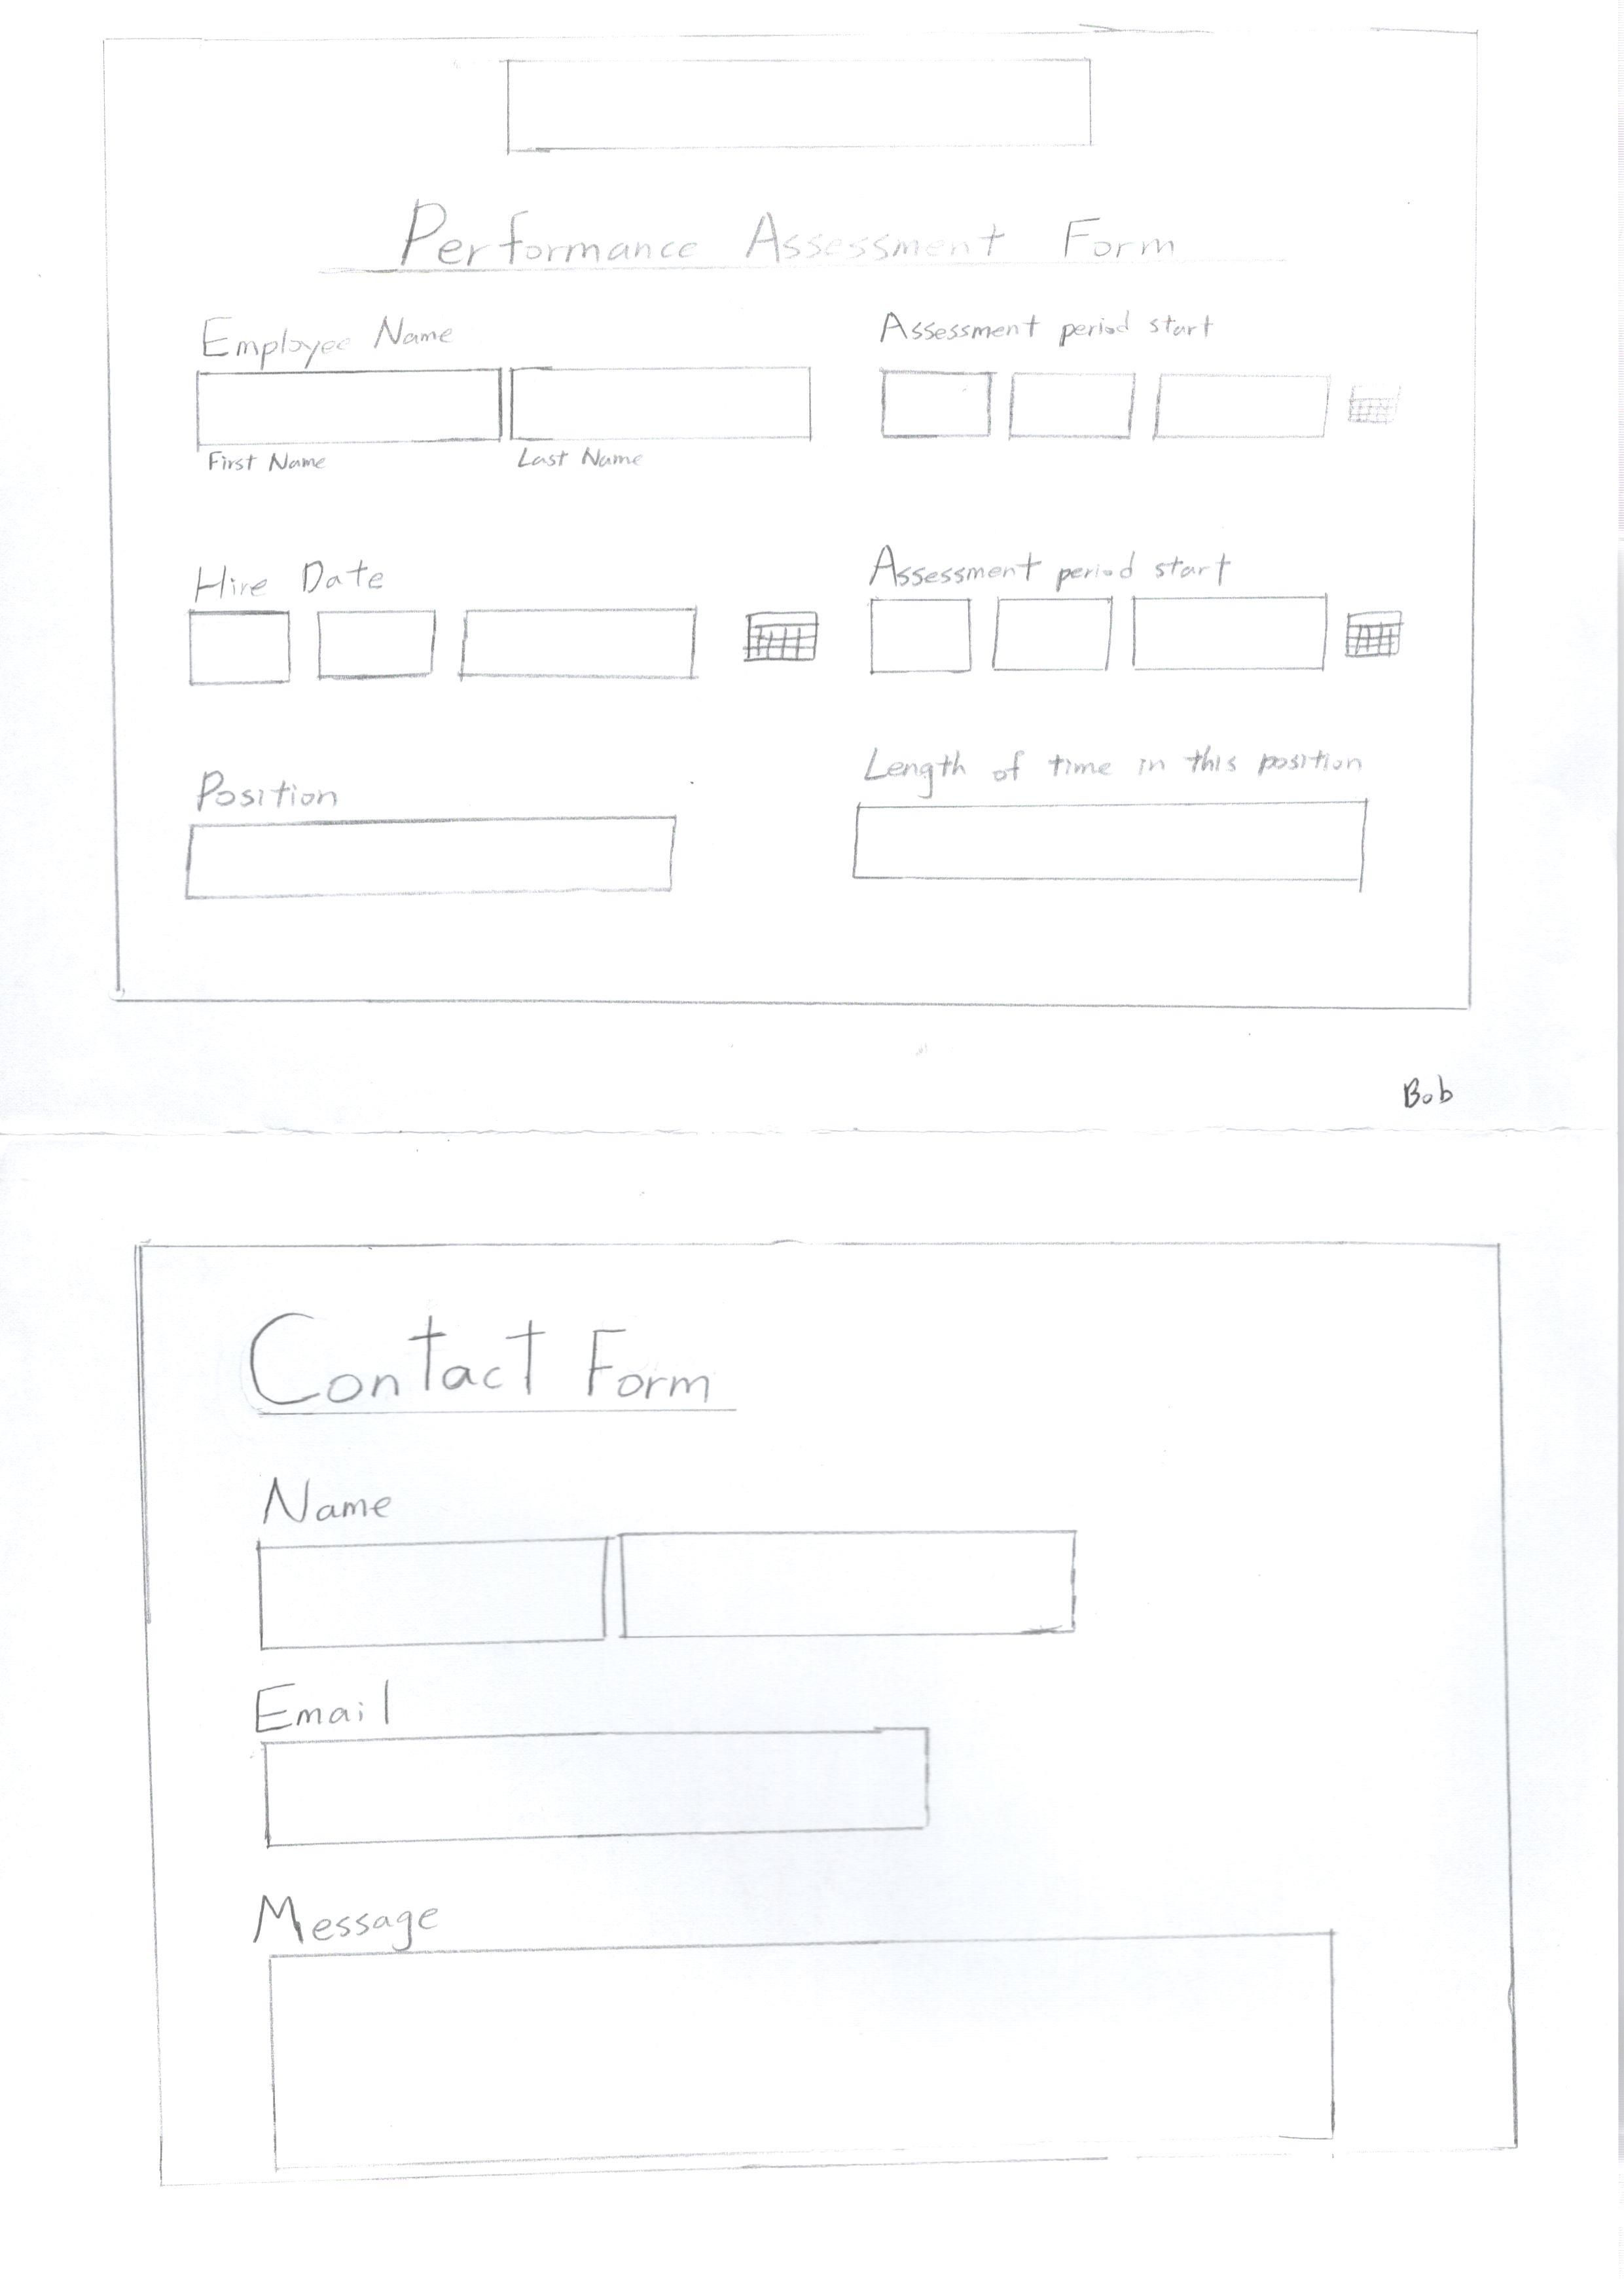 Performance Assessment Form
Employee Name
Assessment period start
First Name
Last Name
Hire Date
Assessment period start
Position
Length of time in this position
Bob
Contact Form
Name
Email
Message